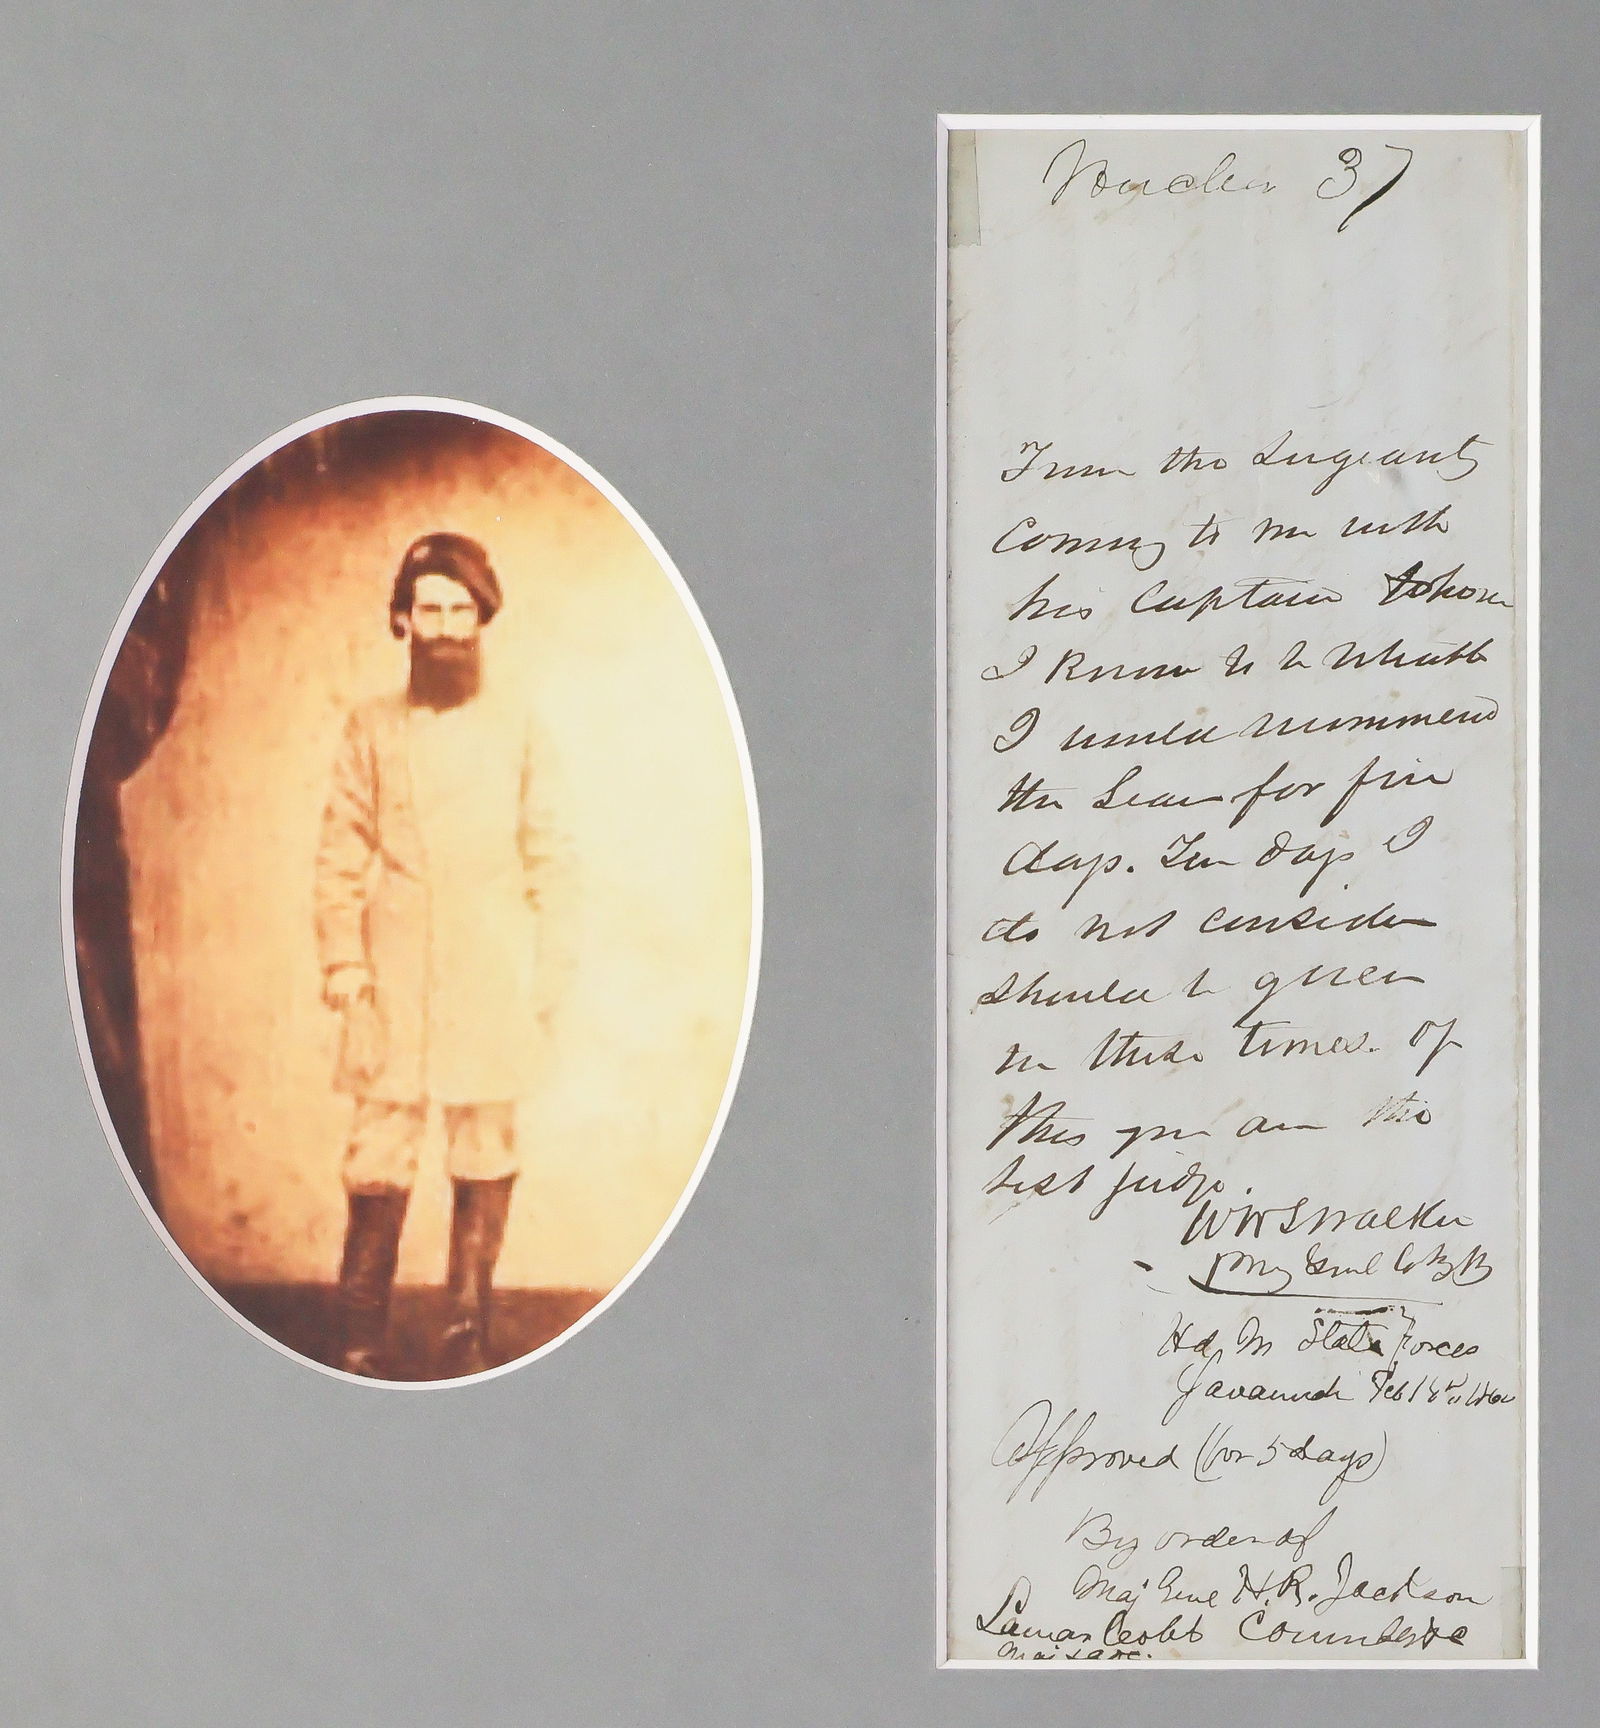 Voucher 37
From the Sergeants
Coming to me with
his Captain whom
I know to be
I would recommend
the leave for five
days. Ten days I
do not consider
should be given
in these times. Of
this you are the
best judge.
WHSWalker
Genl
Hd Qrs State Forces
Savannah Feb
Approved (for 5 days)
By order of
Maj Genl H.R. Jackson
Lamar Cobb
Maj &